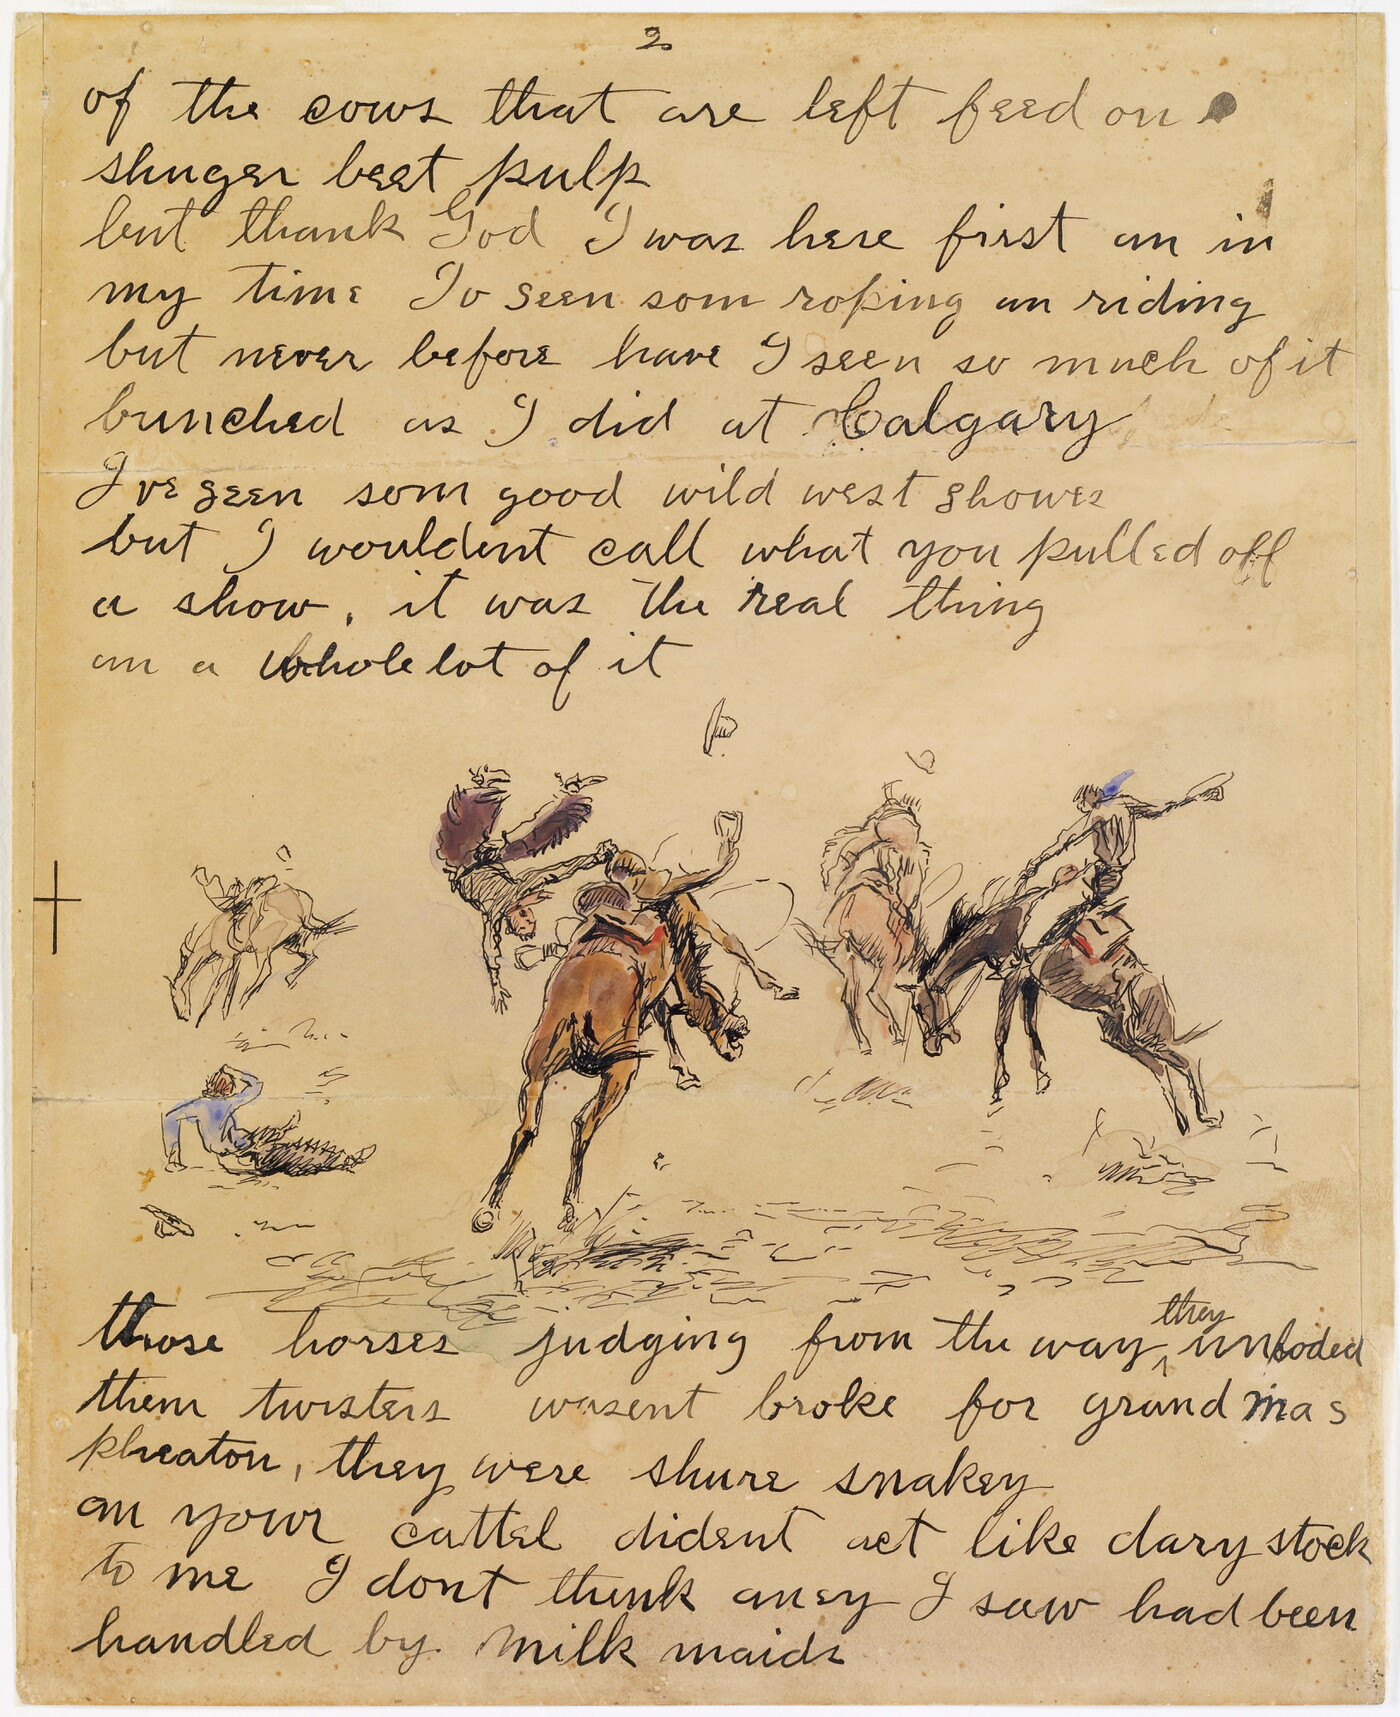 2
of the cows that are left feed on
shuger beet pulp
but thank God I was here first an in
my time Iv seen som roping an riding
but never before have I seen so much of it
bunched as I did at Calgary
Ive seen som good wild west showes
but I wouldent call what you pulled off
a show, it was the real thing
an a whole lot of it
they
those horses judging from the way ^ unloded
them twisters wasent broke for grand mas
pheaton, they were shure snakey
an your cattel dident act like dary stock
to me I dont think aney I saw had been
handled by milk maids